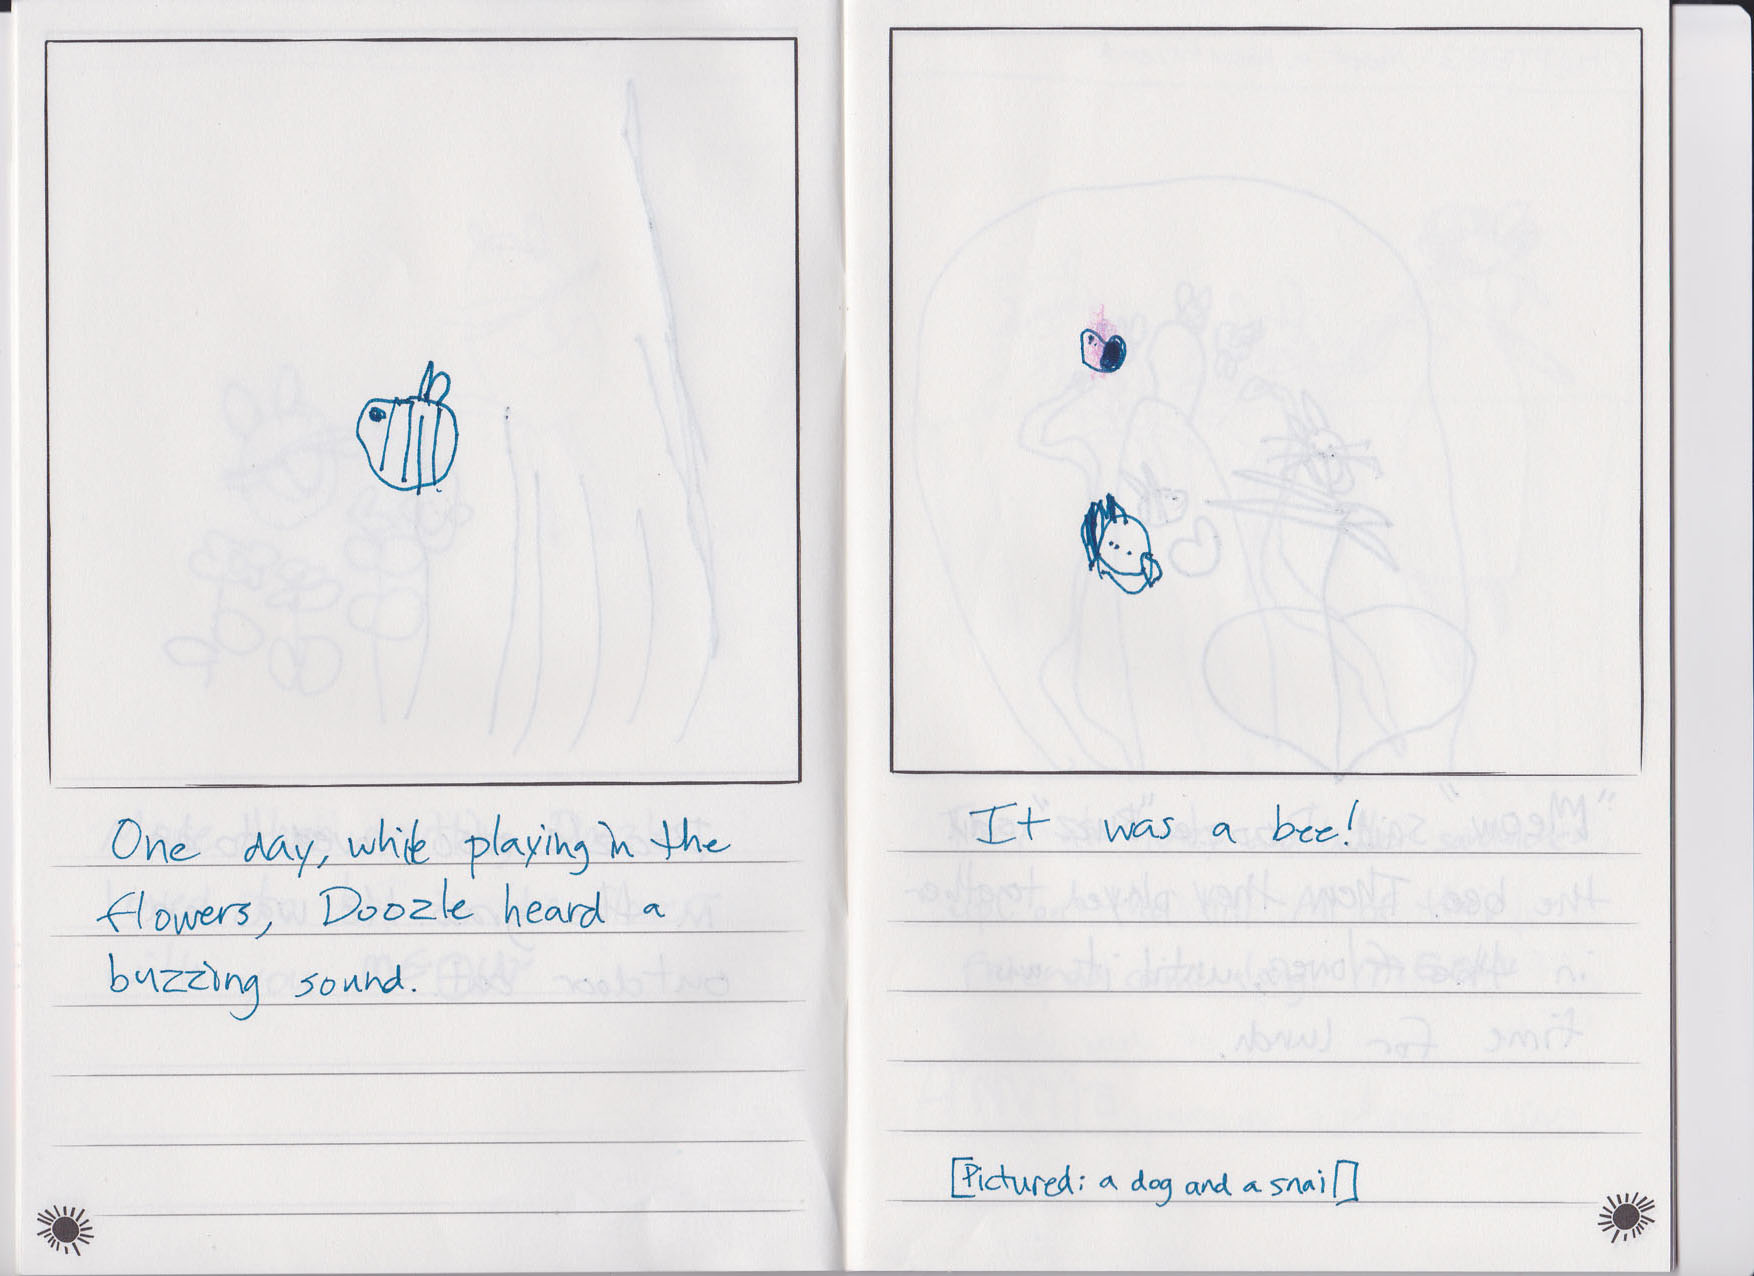 One day, while playing in the
flowers, Doozle heard a
buzzing sound.
It was a bee!
[Pictured: a dog and a snail]